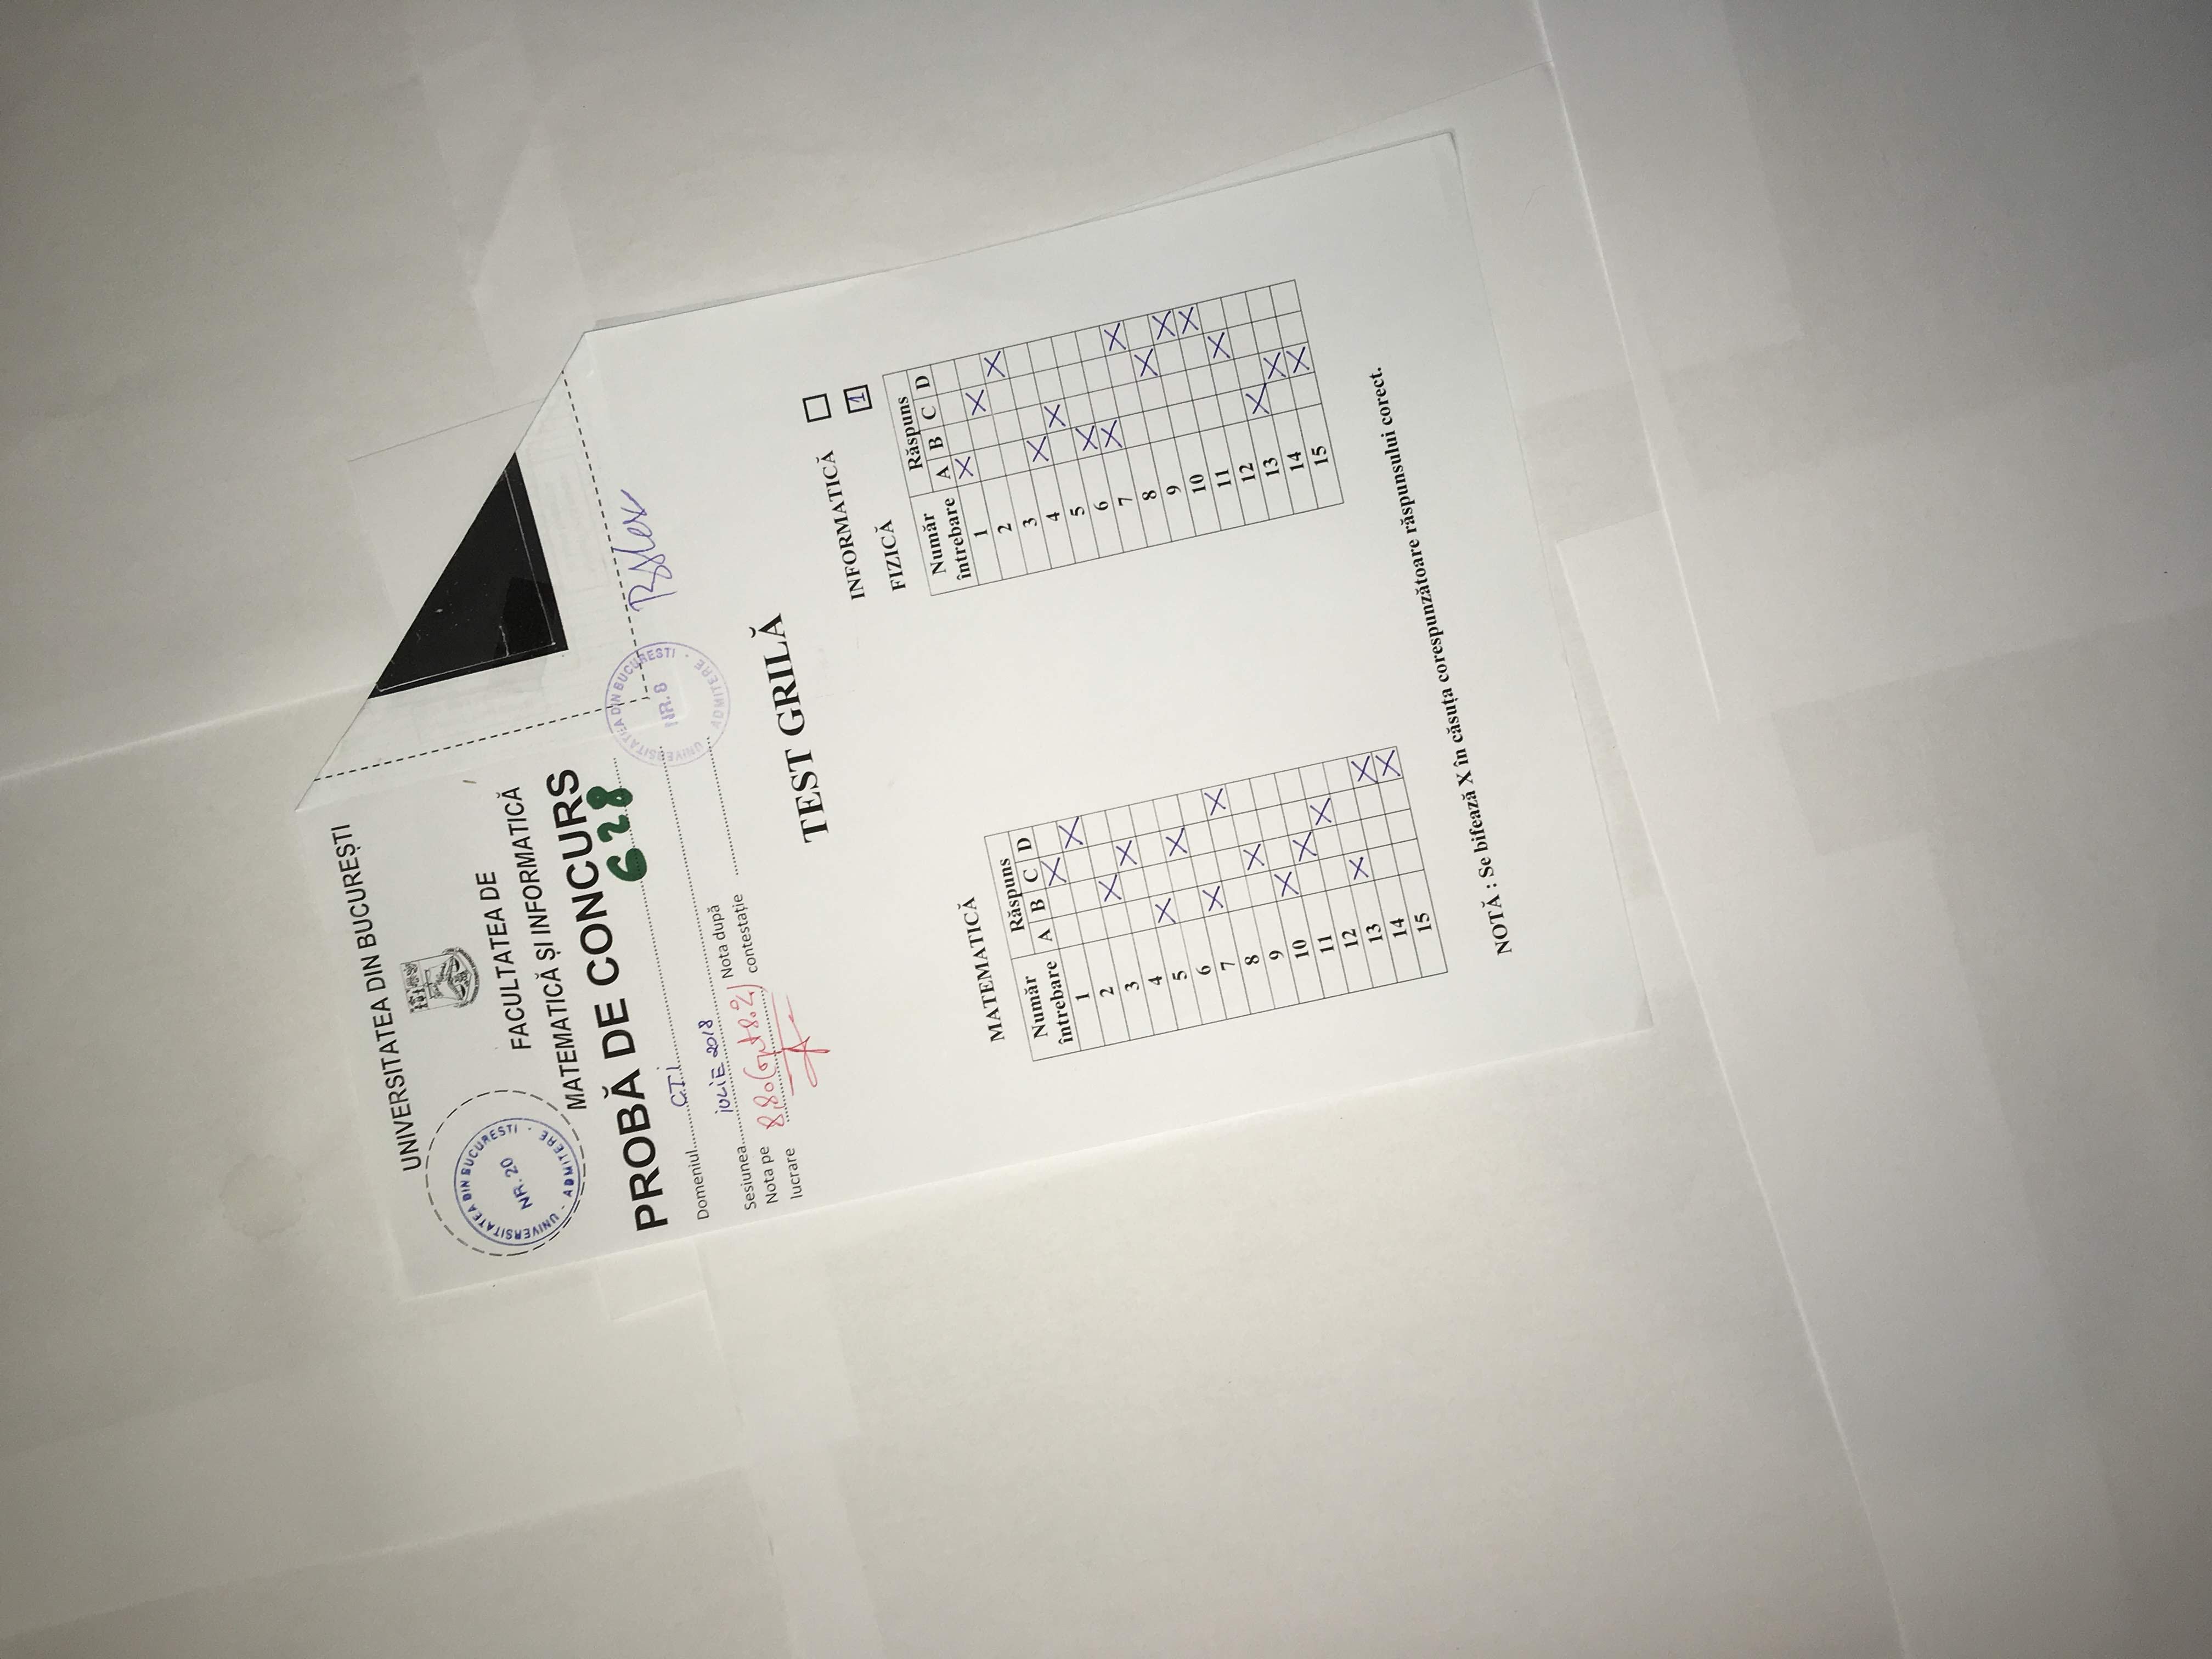 UNIVERSITATEA DIN BUCUREȘTI
UNIVERSITATEA DIN BUCURESTI
NR. 20
· ADMITERE ·
FACULTATEA DE
MATEMATICĂ ȘI INFORMATICĂ
PROBĂ DE CONCURS
628
Domeniul CTi
Sesiunea iULiE 2018
Nota pe lucrare 8,80
Nota după contestație
UNIVERSITATEA DIN BUCURESTI
NR. 8
· ADMITERE ·
TEST GRILĂ
INFORMATICĂ
FIZICĂ 1
MATEMATICĂ
Număr întrebare Răspuns
A B C D
1 X
2 X
3 X
4 X
5 X
6 X
7 X
8 X
9 X
10 X
11 X
12 X
13 X
14 X
15 X
Număr întrebare Răspuns
A B C D
1 X
2 X
3 X
4 X
5 X
6 X
7 X
8 X
9 X
10 X
11 X
12 X
13 X
14 X
15 X
NOTĂ : Se bifează X în căsuța corespunzătoare răspunsului corect.